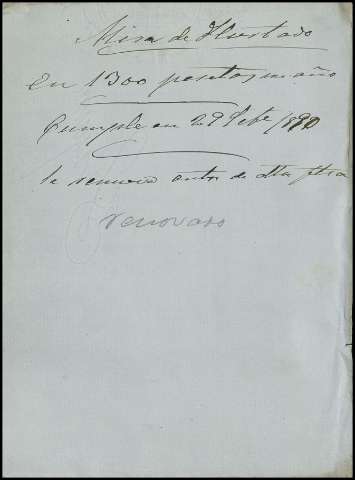 Mina de Hurtado
En 1300 pesetas un año
Cumple en 29 Febr /890
Se renovó antes de dha fha
renovado